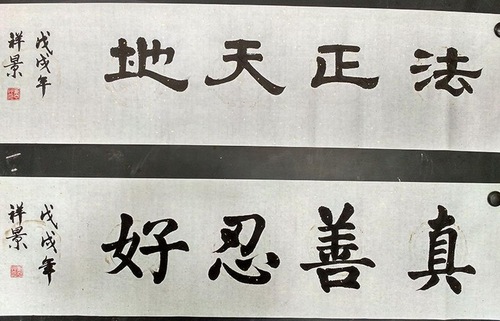 法正天地
戊戌年
祥景
真善忍好
戊戌年
祥景